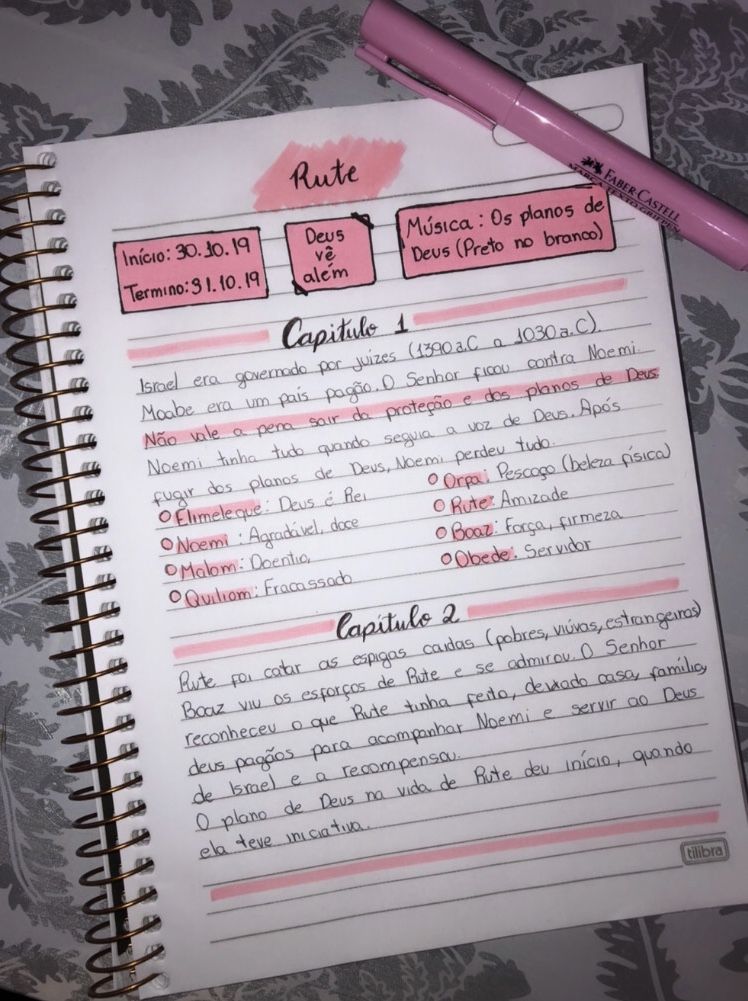 Rute
Início: 30.10.19
Termino: 31.10.19
Deus
vê
além
Música: Os planos de
Deus (Preto no branco)
Capitulo 1
Israel era governado por juízes (1390 a.C a 1030 a.C).
Moabe era um país pagão. O Senhor ficou contra Noemi.
Não vale a pena sair da proteção e dos planos de Deus.
Noemi tinha tudo quando seguia a voz de Deus. Após
fugir dos planos de Deus, Noemi perdeu tudo.
Elimeleque: Deus é Rei
Noemi: Agradável, doce
Malom: Doentio
Quiliom: Fracassado
Orfa: Pescoço (beleza física)
Rute: Amizade
Boaz: Força, firmeza
Obede: Servidor
Capitulo 2
Rute foi catar as espigas caídas (pobres, viúvas, estrangeiros)
Boaz viu os esforços de Rute e se admirou. O Senhor
reconheceu o que Rute tinha feito, deixado casa, família,
deus pagãos para acompanhar Noemi e servir ao Deus
de Israel e a recompensou.
O plano de Deus na vida de Rute deu início, quando
ela teve iniciativa.
tilibra
FABER CASTELL